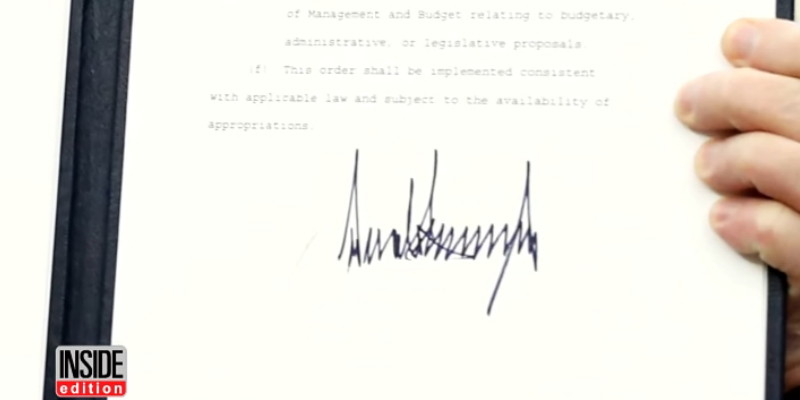 of Management and Budget relating to budgetary,
administrative, or legislative proposals.
(f) This order shall be implemented consistent
with applicable law and subject to the availability of
appropriations.
INSIDE
edition